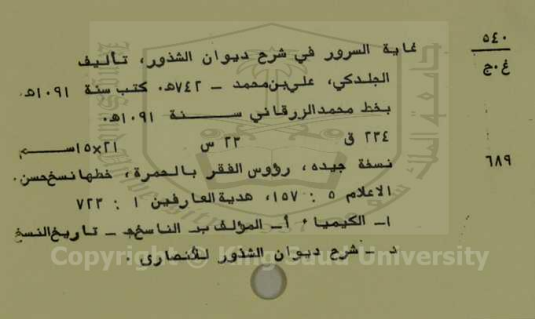 ٥٤٠ غاية السرور في شرح ديوان الشذور، تأليف
غ.ج الجلدكي، علي بن محمد - ٧٤٢هـ. كتب سنة ١٠٩١هـ
بخط محمد الزرقاني سنة ١٠٩١هـ.
٢٣٤ ق ٢٣ س ٢١×١٥سم
٦٨٩ نسخة جيده، رؤوس الفقر بالحمرة، خطها نسخ حسن.
الاعلام ٥ : ١٥٧، هدية العارفين ١ : ٧٢٣
١- الكيمياء أ- المؤلف ب- الناسخ ج- تاريخ النسخ
د - شرح ديوان الشذور للأنصارى.
Copyright © King Saud University